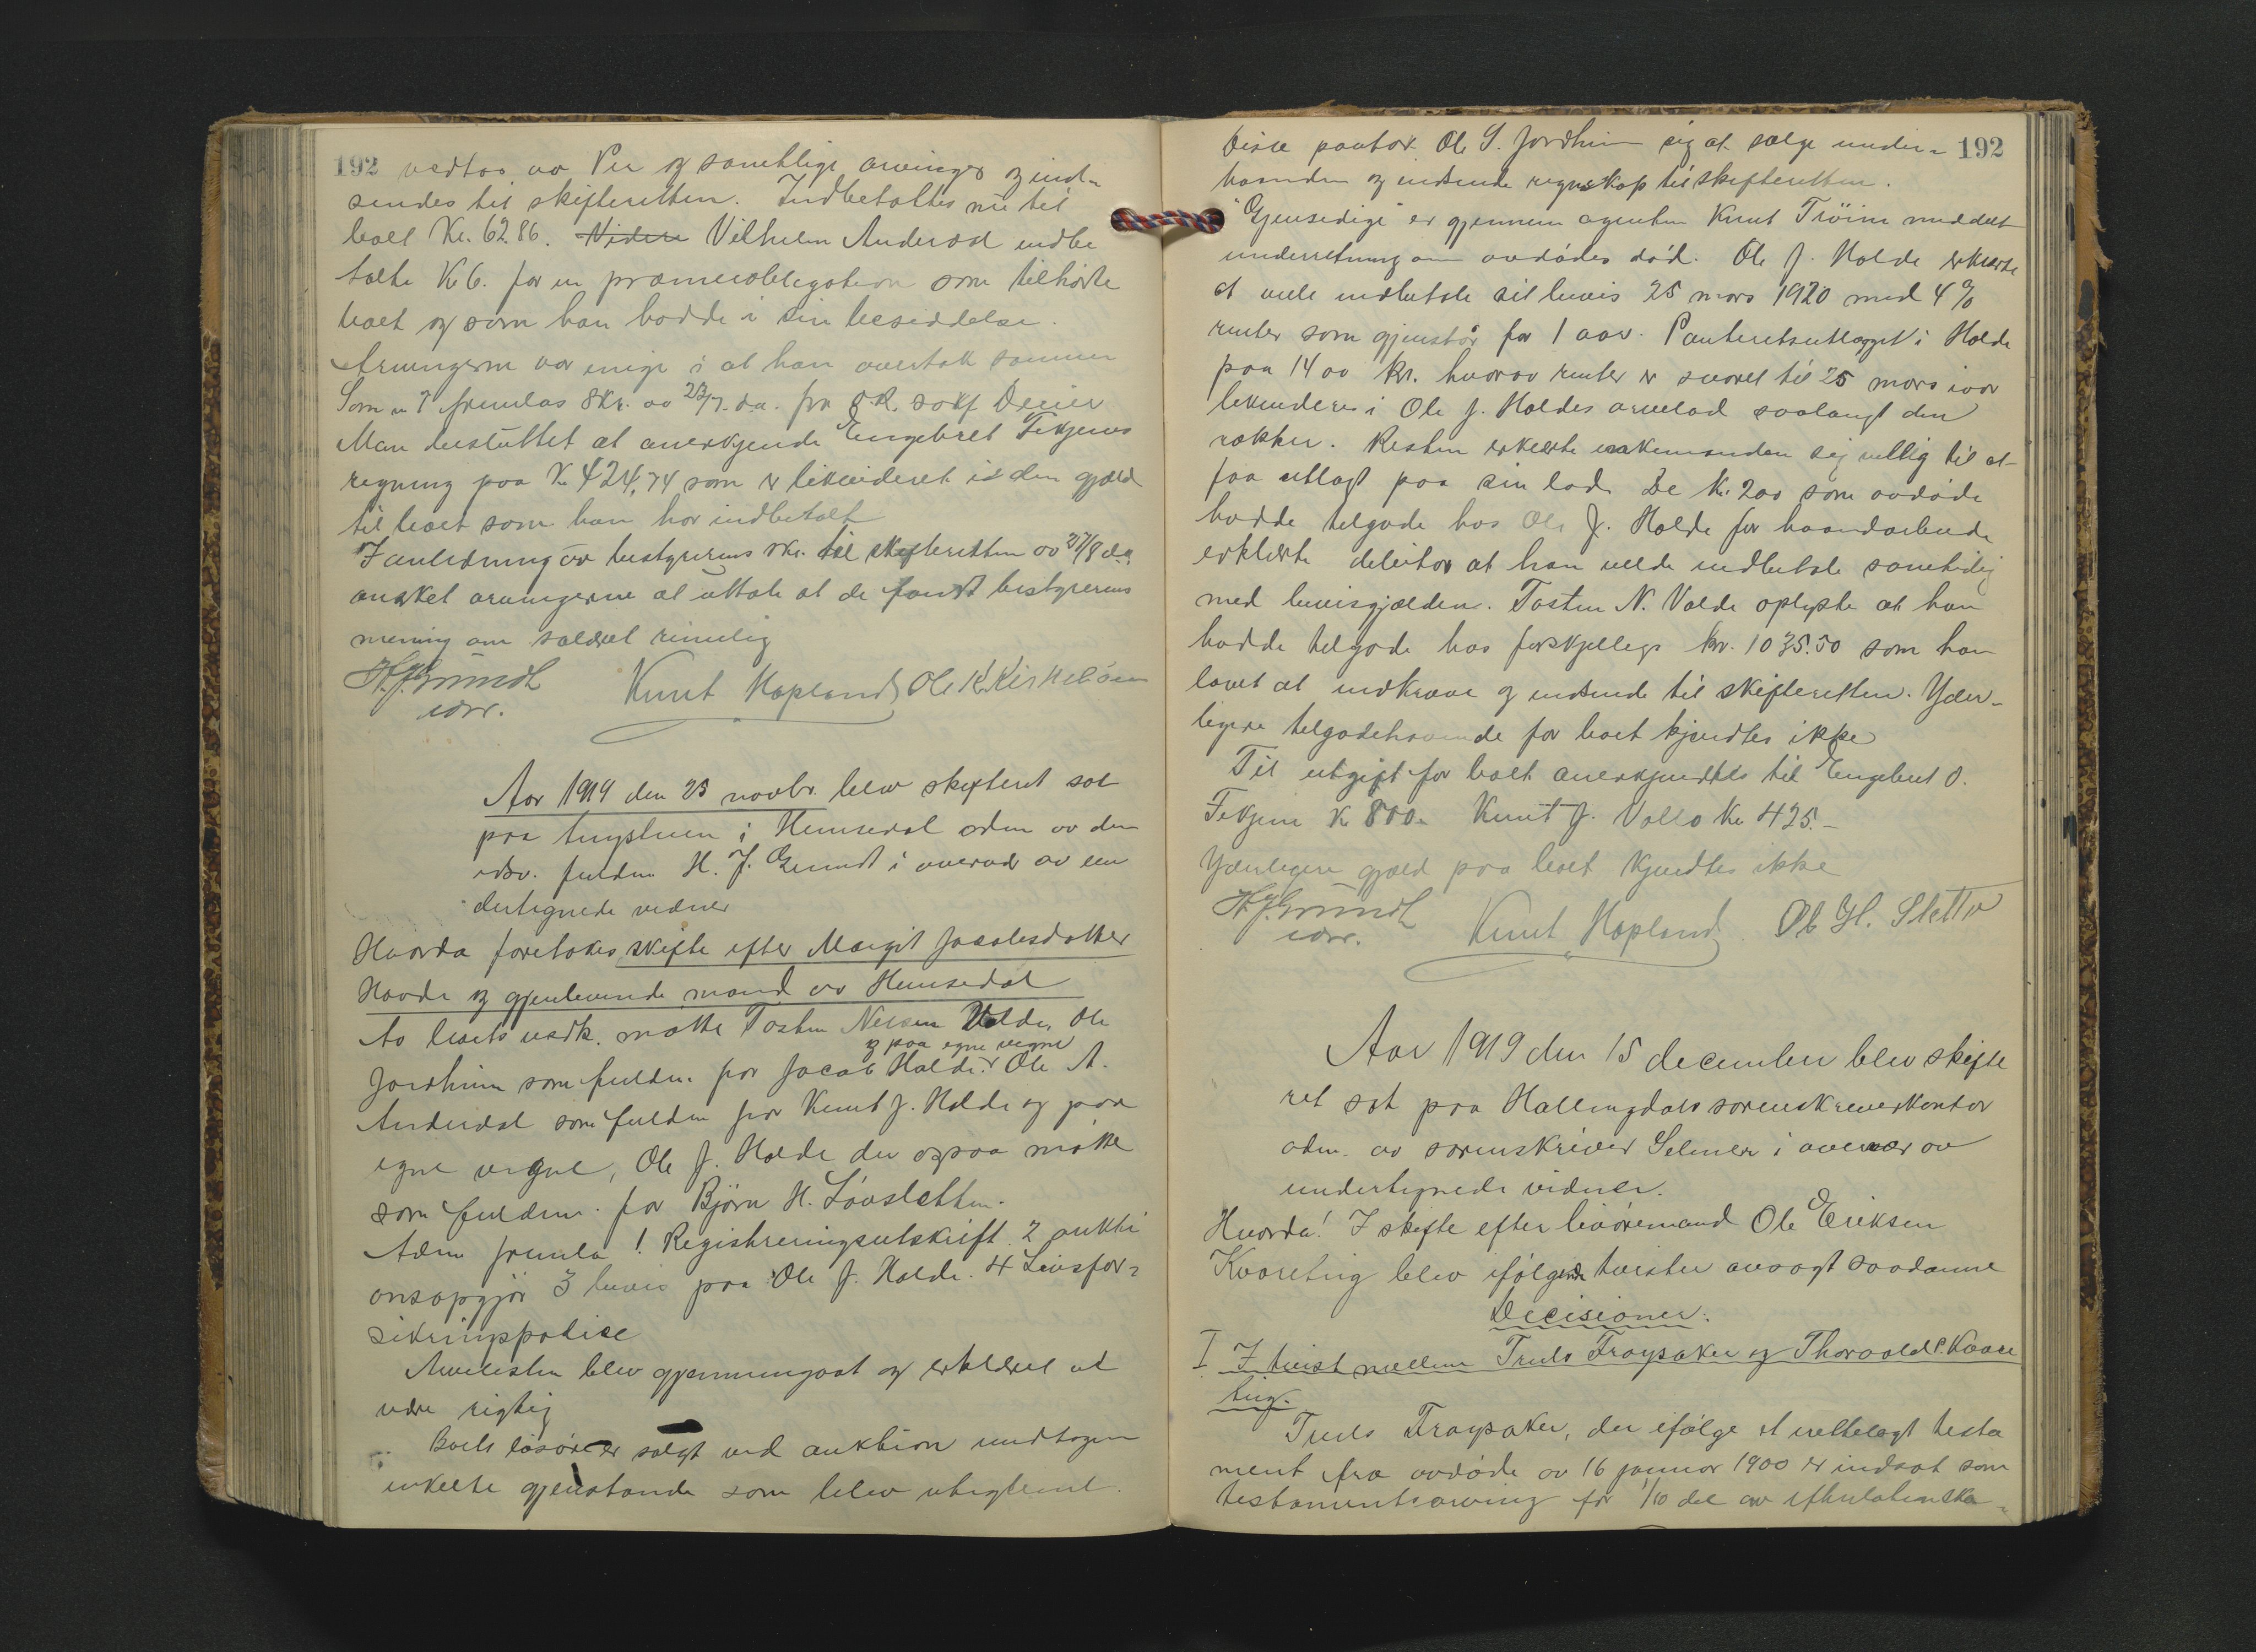 192 vedtas av Per og samtlige arvinger og ind-
sendes til skifteretten. Indbetaltes nu til
boet Kr. 6286. Videre Vilhelm Anderdal indbe
talte Kr 6. for en præmieobligation som tilhørte
boet og som han hadde i sin besiddelse.
Arvingerne var enige i at han overtok samme
Som n 7 fremlas Skr. av 23/7. d.a. fra O.R. sakf
Man besluttet at anerkjende Engebret Fekjens
regning paa Kr 424,74 som er likvideret i den gjæld
til boet som han har indbetalt
I anledning av bestyrerens skr. til skifteretten av 27/8 d.a.
ønsket arvingerne at uttale at de fandt bestyrerens
mening om salæret rimelig
H. J. Grundt Knut Hapland Ole K. Kirkebøen
edsv.
Aar 1919 den 23 novbr. blev skifteret sat
paa tingstuen i Hemsedal adm av den
edsv. fuldm H. J. Grundt i overvær av un
dertegnede vidner
Hvorda foretokes skifte efter Margit Jacobsdatter
Haade og gjenlevende mand av Hemsedal
Av boets vedk. møtte Tosten Nelsen Valde, Ole
og paa egne vegne
Jordheim som fuldm. for Jacob Halde. Ole A.
Anderdal som fuldm for Knut J. Halde og paa
egne vegne, Ole J. Halde der ogsaa møtte
som fuldm. for Björn H. Lövsletten.
Adm fremla 1. Registreringsutskrift 2 aukti
onsopgjør 3 bevis paa Ole J. Halde. 4 Livsfor-
sikringspolice
Arvelisten blev gjennemgaat og erklæret at
være rigtig
Boets løsøre er solgt ved auktion undtagen
enkelte gjenstande som blev uteglemt.
Disse paatok Ole S. Jordheim sig at sælge under- 192
haanden og indsende regnskap til skifteretten.
"Gjensidige" er gjennem agenten Knut Tröim meddelt
underretning om avdødes død. Ole J. Halde erklærte
at ville indbetale sit bevis 25 mars 1920 med 4%
renter som gjenstår for 1 aar. Panteretsutlægget i Halde
paa 1400 kr. hvorav renter er svaret til 25 mars iaar
likvideres i Ole J. Haldes arvelod saalangt den
rækker. Resten erklærte enkemanden sig villig til at
faa utlagt paa sin lod. De kr. 200 som avdøde
hadde tilgode hos Ole J. Halde for haandarbeide
erklærte debitor at han vilde indbetale samtidig
med bevisgjælden. Tosten N. Valde oplyste at han
hadde tilgode hos forskjellige kr. 1035.50 som han
lovet at indkræve og indsende til skifteretten. Yder-
ligere tilgodehavende for boet kjendtes ikke
Til utgift for boet anerkjendtes til Engebret O.
Fekjene Kr 800.- Knut J. Vallo Kr. 425.-
Yderligere gjæld paa boet kjendtes ikke
H. J. Grundt Knut Hapland Ol Gl. Slette
edsv.
Aar 1919 den 15 december blev skifte
ret sat paa Hallingdals sorenskriverkontor
adm. av sorenskriver Selmer i overvær av
undertegnede vidner.
Hvorda! I skifte efter livøremand Ole Eriksen
Kvareting blev ifølgende tvister avsagt saadanne
Decisioner:
I I tvist mellem Truls Frøysaker og Thorvald P. Kvare
ting.
Truls Frøysaker, der ifølge et rettelagt testa
ment fra avdøde av 16 januar 1900 er indsat som
testamentsarving for 1/10 del av efterlatenska-